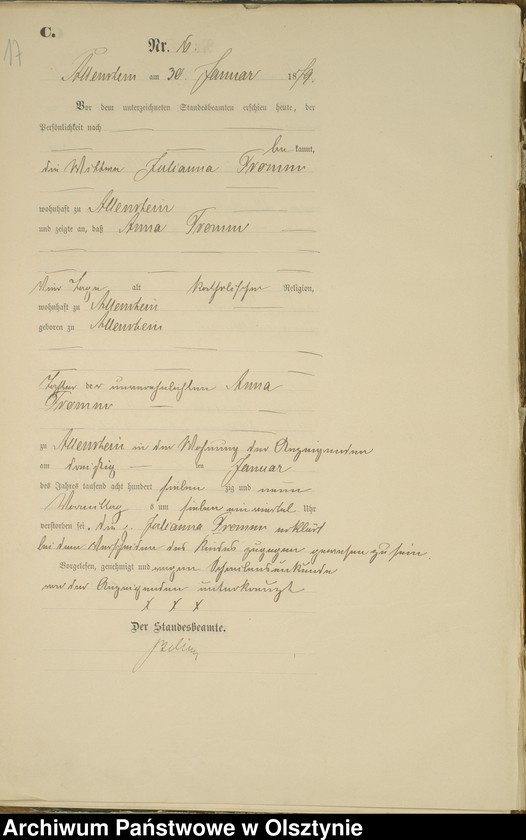 C.
17
Nr. 16.
Allenstein am 30 Januar 1879.
Vor dem unterzeichneten Standesbeamten erschien heute, der
Persönlichkeit nach
be kannt,
die Wittwe Julianna Fromm
wohnhaft zu Allenstein
und zeigte an, daß Anna Fromm
Vier Tage alt katholischer Religion,
wohnhaft zu Allenstein
geboren zu Allenstein
Tochter der unverehelichten Anna
Fromm
zu Allenstein in der Wohnung der Anzeigenden
am dreißig ten Januar
des Jahres tausend acht hundert sieben zig und neun
Vormittag s um sieben ein viertel Uhr
verstorben sei, die p. Julianna Fromm erklärt
bei dem Verscheiden des Kindes zugegen gewesen zu sein.
Vorgelesen, genehmigt und wegen Schreibensunkunde
von der Anzeigenden unterkreuzt
x x x
Der Standesbeamte.
Archiwum Państwowe w Olsztynie